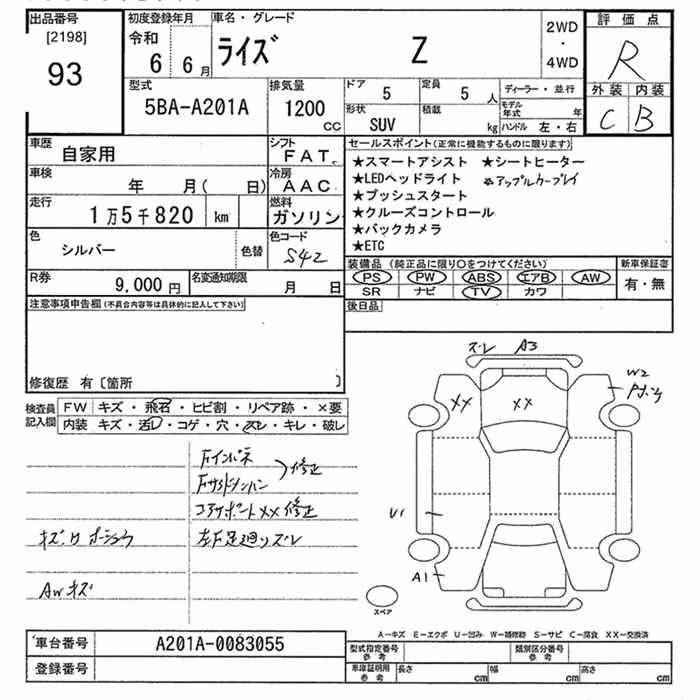 出品番号 初度登録年月 車名・グレード 評価点
[2198] 令和 ライズ Z 2WD ・ 4WD R
93 6 6月
型式 排気量 ドア 5 定員 5人 ディーラー・並行 外装 内装
5BA-A201A 1200 CC 形状 SUV 積載 kg モデル年式 年 C B
ハンドル 左・右
車歴 自家用 シフト FAT セールスポイント(正常に機能するものに限ります)
車検 年 月( 日) 冷房 AAC ★スマートアシスト ★シートヒーター
★LEDヘッドライト ※アップルカープレイ
走行 1万5千820 km 燃料 ガソリン ★プッシュスタート
★クルーズコントロール
色 シルバー 色替 色コード S42 ★バックカメラ
★ETC
装備品(純正品に限り〇をつけてください) 新車保証書
R券 9,000円 名変通知期限 月 日 PS PW ABS エアB AW 有・無
SR ナビ TV カワ
注意事項申告欄(不具合内容等は具体的に記入して下さい) 後日品
修復歴 有〔箇所 〕
検査員記入欄 FW キズ・飛石・ヒビ割・リペア跡・×要
内装 キズ・汚レ・コゲ・穴・スレ・キレ・破レ
ズレ A3
W2
XX XX
Fインパネ
修正
コアサポートXX修正
左F足廻リズレ
U1
A1
AWキズ
スペア
A―キズ E―エクボ U―凹み W―補修跡 S―サビ C―腐食 XX―交換済
車台番号 A201A-0083055 型式指定番号 参考 類別区分番号 参考
登録番号 車庫証明用 参考 長さ cm 幅 cm 高さ cm